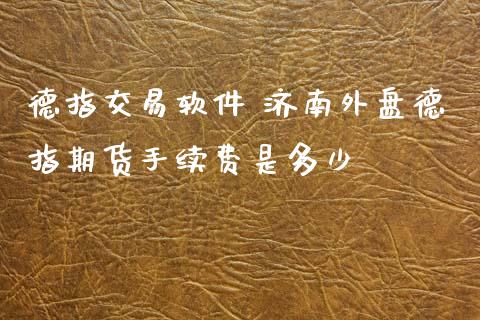 德指交易软件 济南外盘德
指期货手续费是多少